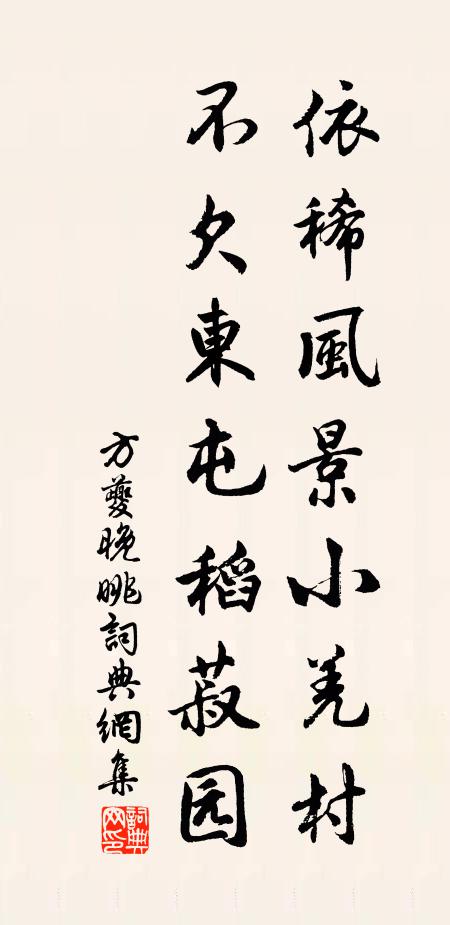 依稀風景小羌村
不欠東屯稻菽园
方夔晚眺詞典網集
詞典网印